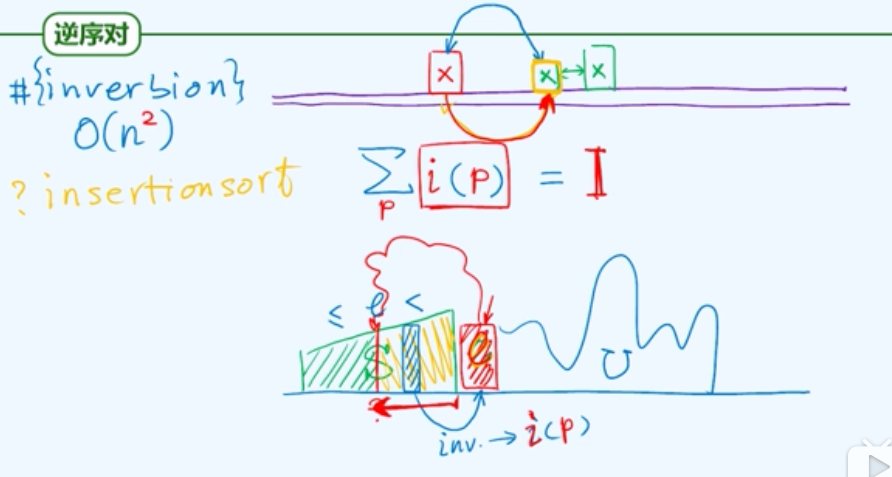 逆序对
#{inversion}
O(n²)
? insertionsort
x x ↔ x
∑ i(p) = I
p
≤ e <
S e U
inv. → i(p)